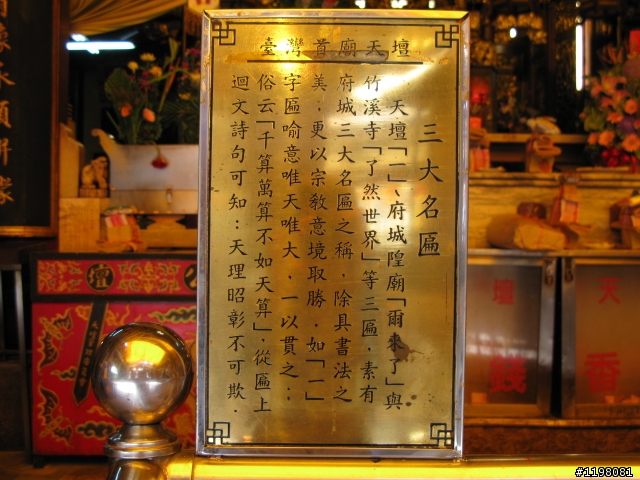 臺灣首廟天壇
三大名匾
天壇「一」、府城隍廟「爾來了」與
竹溪寺「了然世界」等三匾，素有
府城三大名匾之稱，除具書法之
美，更以宗教意境取勝，如「一」
字匾喻意唯天唯大，一以貫之；
俗云「千算萬算不如天算」，從匾上
迴文詩句可知：天理昭彰不可欺．
壇
天
香
#1198081